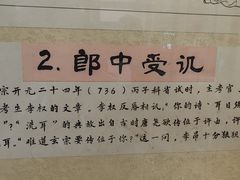 2.郎中受讥
宗开元二十四年(736)丙子科省试时,主考官
考生李权的文章。李权反唇相讥"你的诗'耳
"?"洗耳"的典故出自古时唐尧欲传位于许由,许
耳。难道玄宗要传位于你?"这一问,李昂十分狼狈